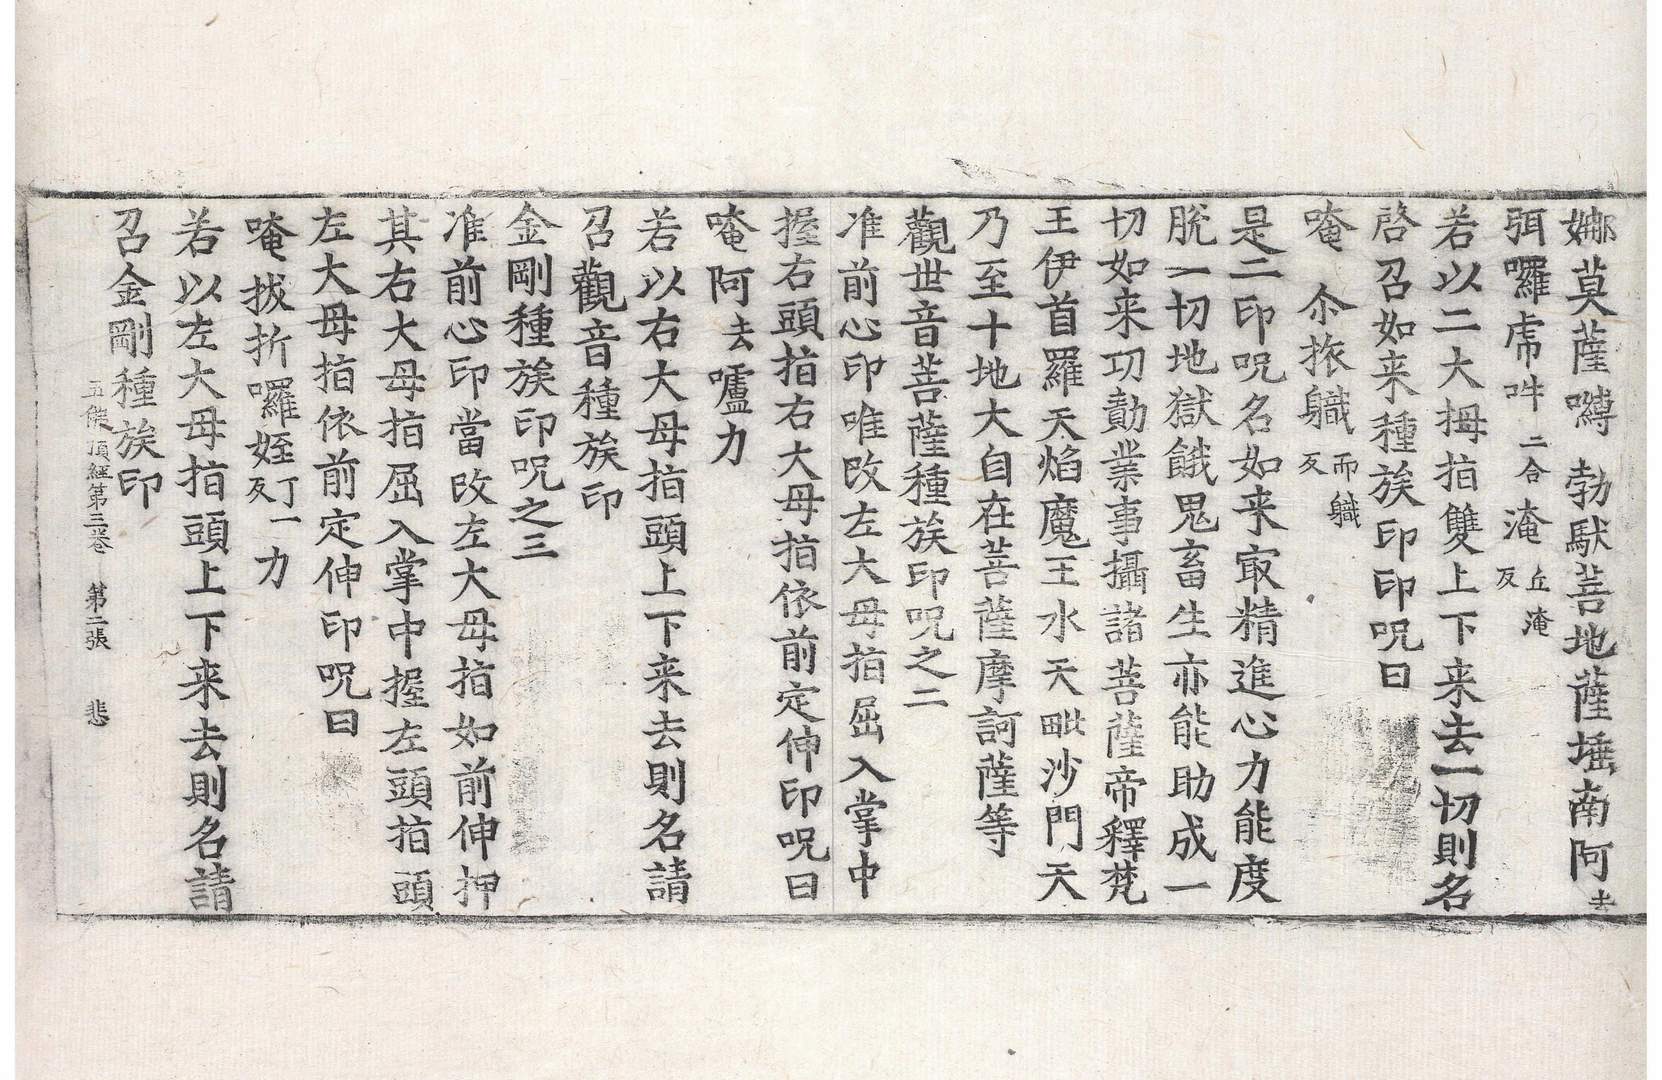 娜莫薩嚩勃馱菩地薩埵南阿去
弭囉虎吽二合淹丘淹反
若以二大拇指雙上下来去一切則名
啓召如来種族印印呪曰
唵尒㧊軄而軄反
是二印呪名如来㝡精進心力能度
脫一切地獄餓鬼畜生亦能助成一
切如来功勳業事攝諸菩薩帝釋梵
王伊首羅天焰魔王水天毗沙門天
乃至十地大自在菩薩摩訶薩等
觀世音菩薩種族印呪之二
准前心印唯改左大母指屈入掌中
握右頭指右大母指依前定伸印呪曰
唵阿去嚧力
若以右大母指頭上下来去則名請
召觀音種族印
金剛種族印呪之三
准前心印當改左大母指如前伸押
其右大母指屈入掌中握左頭指頭
左大母指依前定伸印呪曰
唵拔折囉姪丁一反力
若以左大母指頭上下来去則名請
召金剛種族印
五佛頂經第三卷　第二張　悲